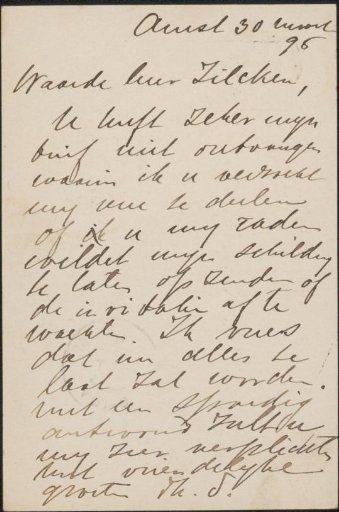 Amst 30 maart
96
Waarde heer Zilcken,
U heeft zeker mijn
brief niet ontvangen
waarin ik u verzocht
mij mee te deelen
of ik u mij raden
wildet mijn schilderij
te laten opzenden of
de invitatie af te
wachten. Ik vrees
dat nu alles te
laat zal worden.
met een spoedig
antwoord zult u
mij zeer verplichten
met vriendelijke
groeten Th. S.